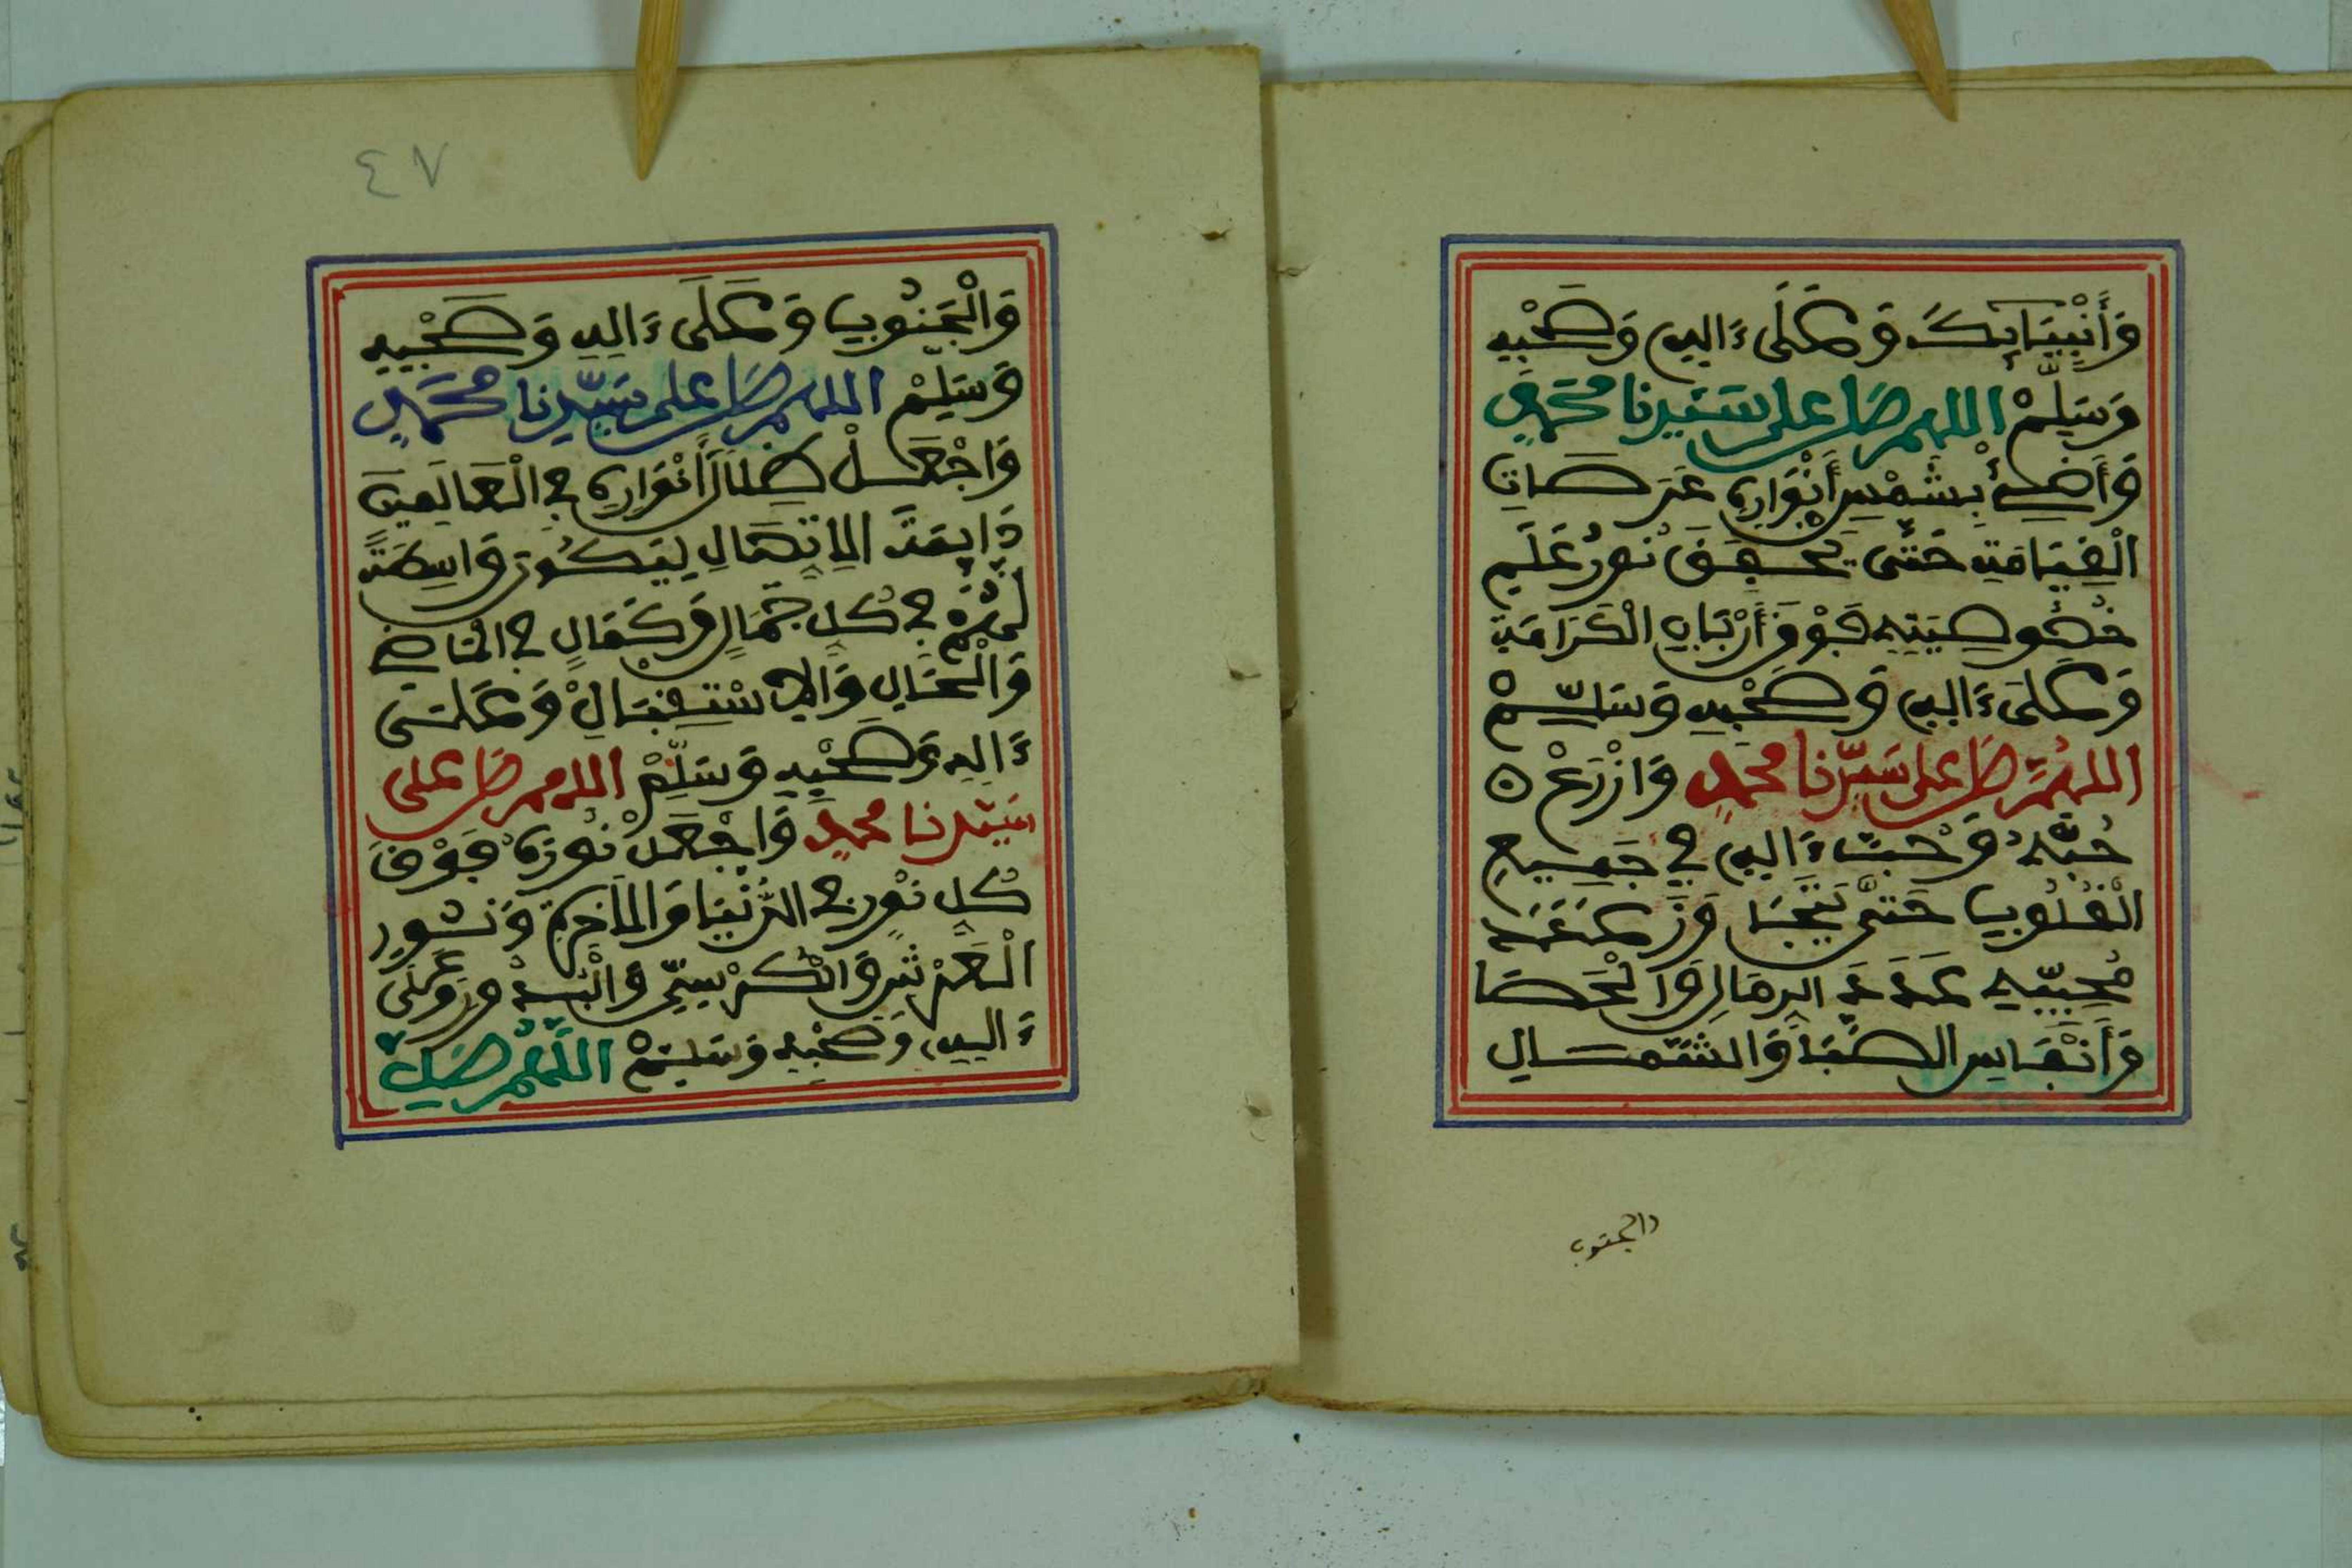 وَأَنْبِيَائِكَ وَعَلَى ءَالِهِ وَصَحْبِهِ
وَسَلِّمْ اللهم صَل على سَيِّدنا محَمدٍ
وَأَضِئْ بِشَمْسِ أَنْوَارِهِ عَرَصَاتِ
الْقِيَامَةِ حَتَّى يَخْفِقَ نُورُ عَلَمِ
خُصُوصِيَتِهِ فَوْقَ أَرْبَابِ الْكَرَامَةِ
وَعَلَى ءَالِهِ وَصَحْبِهِ وَسَلِّمْ
اللهُمَّ صَل على سَيِّدنا محمدٍ وَازْرَعْ ٥
حُبَّهُ وَحُبَّ ءَالِهِ فِي جَمِيعِ
الْقُلُوبِ حَتَّى
مُحِبِّيهِ عَدَدَ الرِمَالِ وَالْحَصَا
وَأَنْفَاسِ الصَّبَا وَالشَّمَالِ
والجنوب
٤٧
وَالْجَنُوبِ وَعَلَى ءَالِهِ وَصَحْبِهِ
وَسَلِّمْ اللهم صَل على سَيِّدنا محَمَّدٍ
وَاجْعَلْ ظِلَالَ أَنْوَارِهِ فِي الْعَالَمِينَ
دَائِمَةَ الِاتِّصَالِ لِيَكُونَ وَاسِطَةً
لَهُمْ فِي كُلِ جَمَالٍ وَكَمَالٍ فِي الْمَاضِ
وَالْحَالِ وَالِاسْتِقْبَالْ وَعَلَى
ءَالِهِ وَصَحْبِهِ وَسَلِّمْ اللهم صَل على
سَيِّدنا محمدٍ وَاجْعَلْ نُورَهُ فَوْقَ
كُلِ نُورٍ فِي الدُّنْيَا وَالْأَخِرَةِ وَنُشُورِ
الْعَرْشِ وَالْكُرْسِيِّ وَعَلَى
ءَالِهِ، وَصَحْبِهِ وَسَلِّمْ اللَّهُمَّ صَلِّ